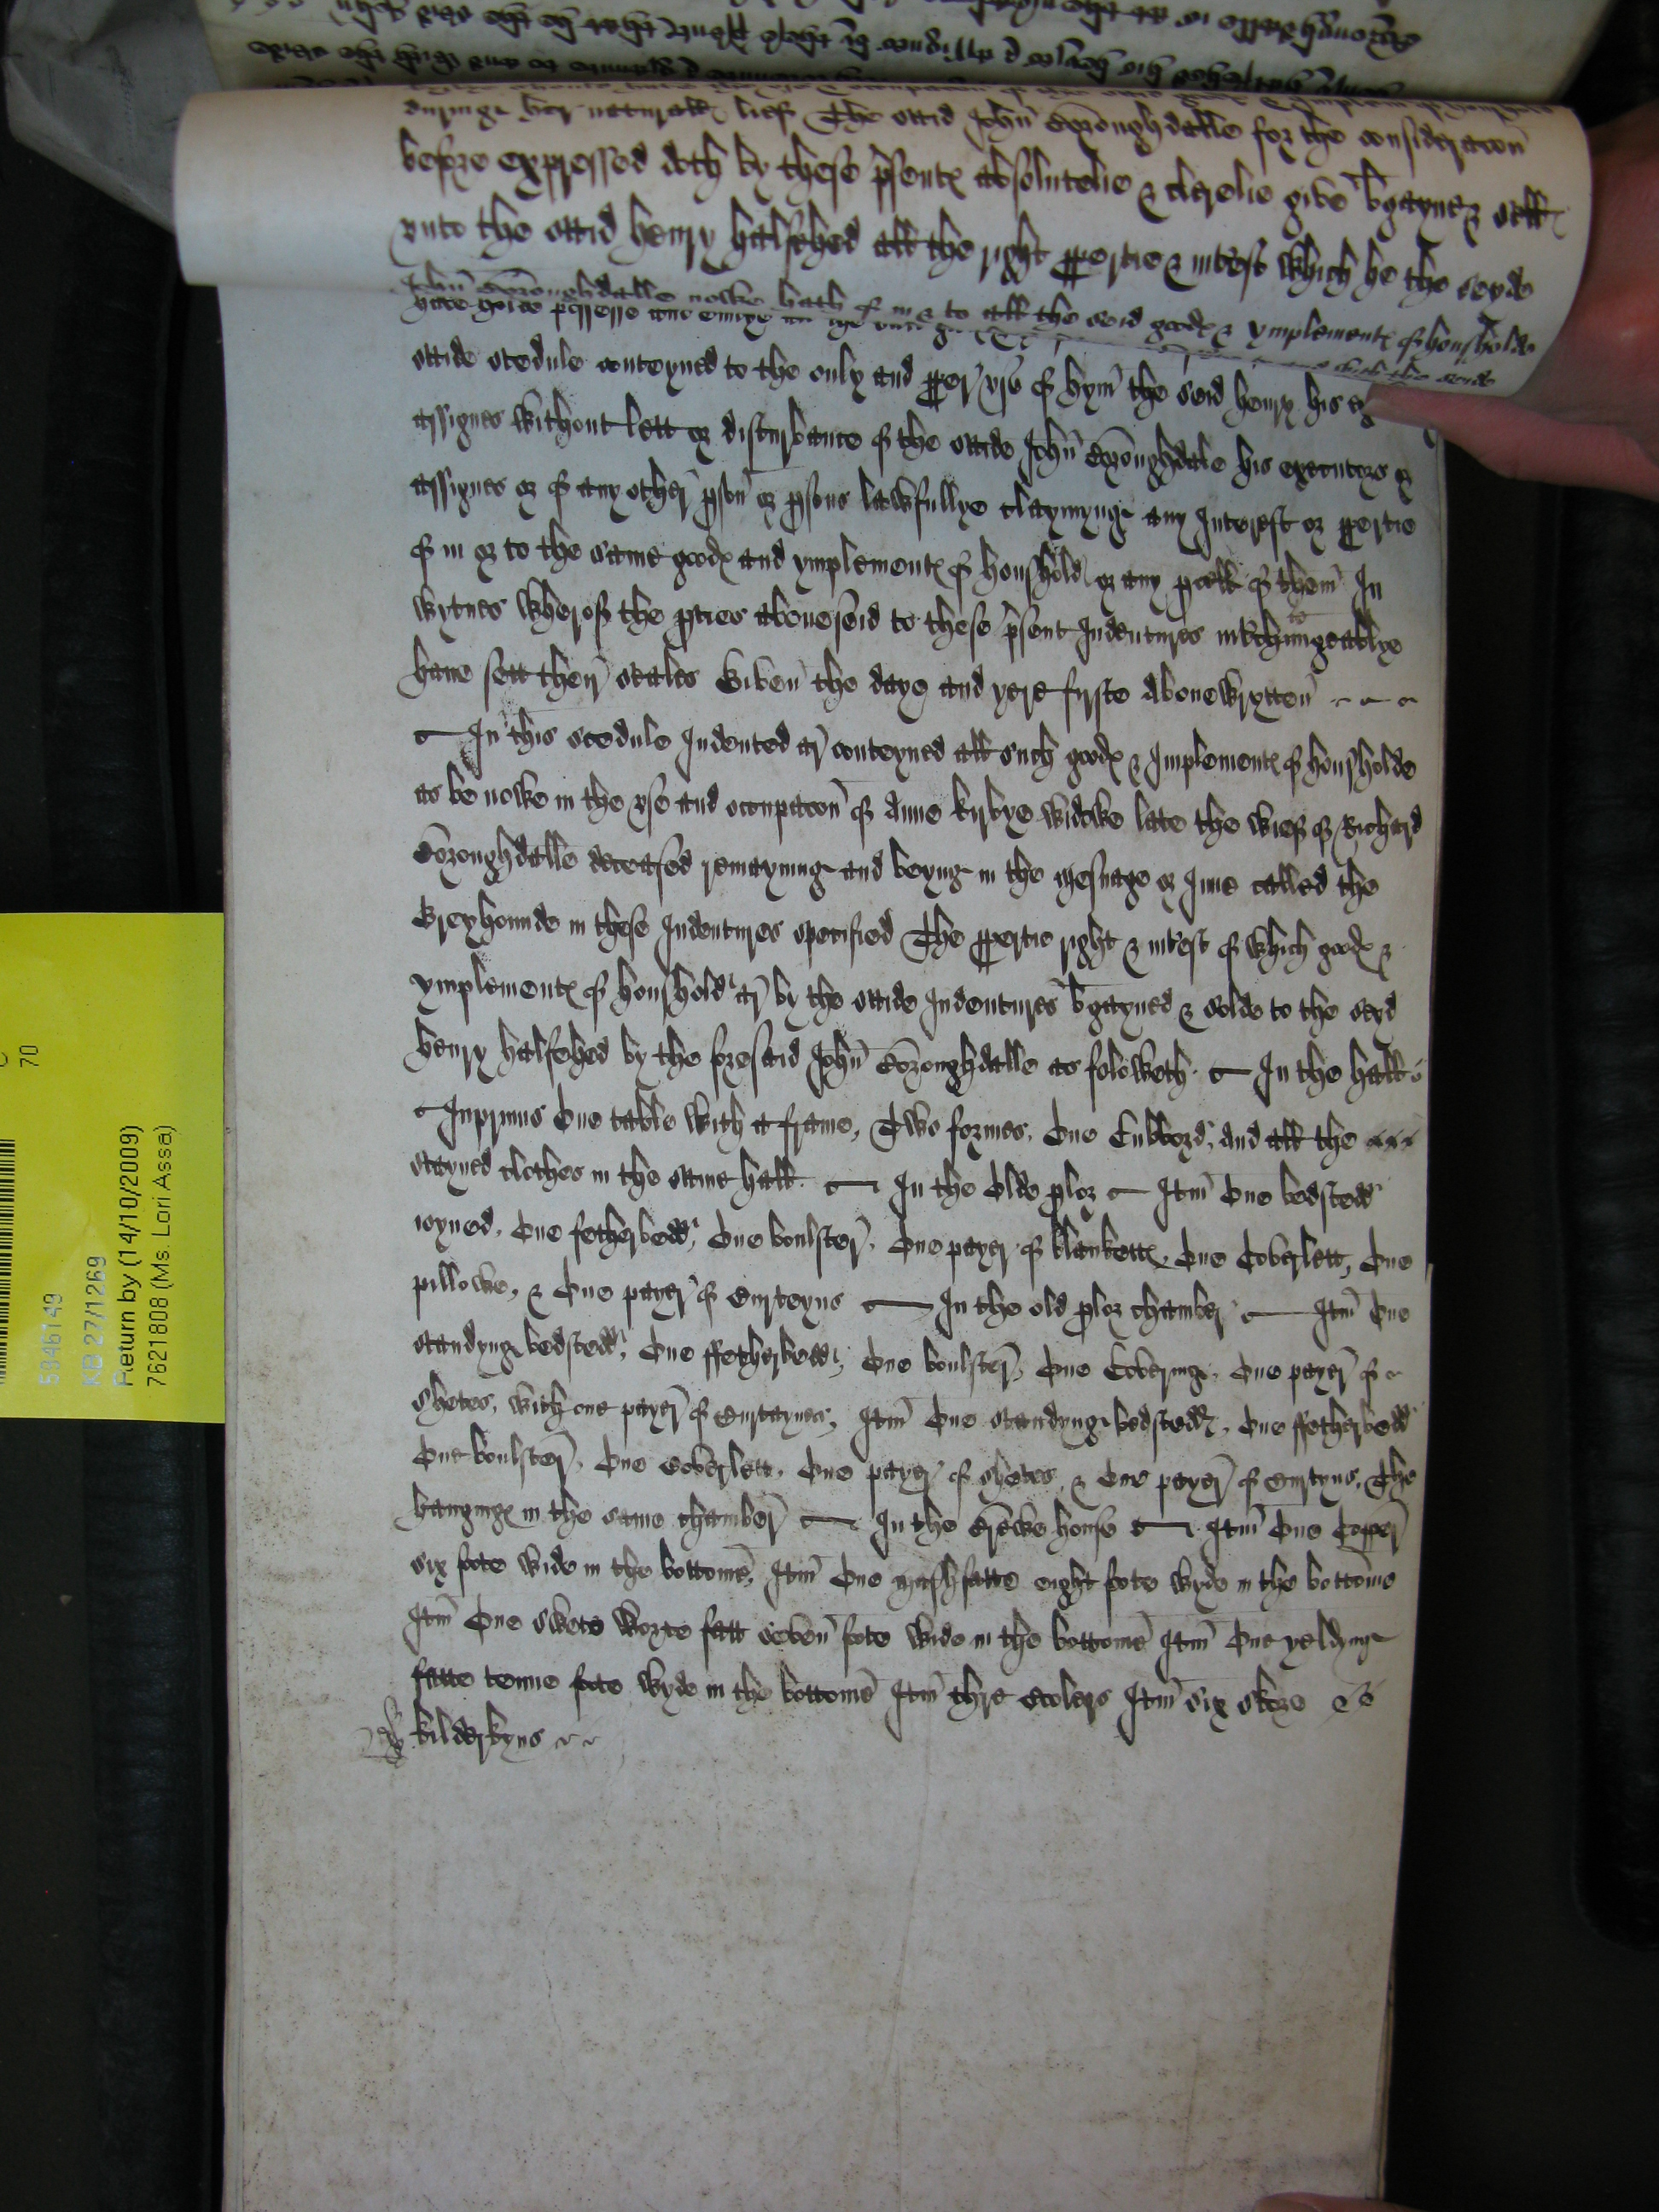 duringe her naturall lief The said John Boroughdalle for the consideracon
before expressed doth by these psente absolutelie & clerelie give bgayne & sell
unto the said Henry Halfehed all the right pptie & intrest which he the seyde
John Boroughdalle nowe hath of in & to all the seid goode & ymplemente of housholde
have holde possesse and enioye all the said
saide scedule conteyned to the only and pper use of hym the seid Henry his
assignes without lett or disturbance of the saide John Boroughdale his executors &
assignes or of any other pson or psons lawfullye claymynge any Interest or pptie
of in or to the same goode and ymplemente of houshold or any pcell of them In
wytnes wherof the pties aboveseid to these psent Indentures intchungeablye
have sett their seales Given the daye and yere fyrste Abovewrytten
In this scedule Indented ar conteyned all such goode & Implemente of housholde
as be nowe in the use and occupacon of Anne Kirbye widowe late the wief of Richard
Boroughdalle deceased remaynyng and beyng in the mesuage or Inne called the
Greyhounde in these Indentures specified The pptie right & intrest of which goode &
ymplemente of houshold ar by the saide Indentures bgayned & solde to the seyd
Henry Halfehed by the foresaid John Boroughdalle as foloweth In the hall
Inprimis One table with a frame, Two formes, One Cubbord, and all the
stayned clothes in the same hall In the Olde plor Itm One bedstedd
ioyned, One fetherbedd, One boulster, One payer of blankette, One Coverlett, One
pillowe, & One payer of Curteyns In the old plor chamber Itm One
standynge bedstedd, One ffetherbedd, One boulster, One Coveringe, One payer of
shetes, with one payer of Curtaynes, Itm One standynge bedstedd, One ffetherbedd
One boulster, One Coverlett, One payer of shetes, & One payer of Curtyns, The
hanginge in the same chamber In the Brewe house Itm One Copper
six foote wide in the bottome, Itm One mashfatte eight foote wyde in the bottome
Itm One swete worte fatt seven foote wide in the bottome Itm One yeldynge
fatte tenne foote wyde in the bottome Itm thre Coolers Itm six skore
kilderkyns
5346149
KB 27/1269
Return by (14/10/2009)
7621808 (Ms. Lori Assa)
70